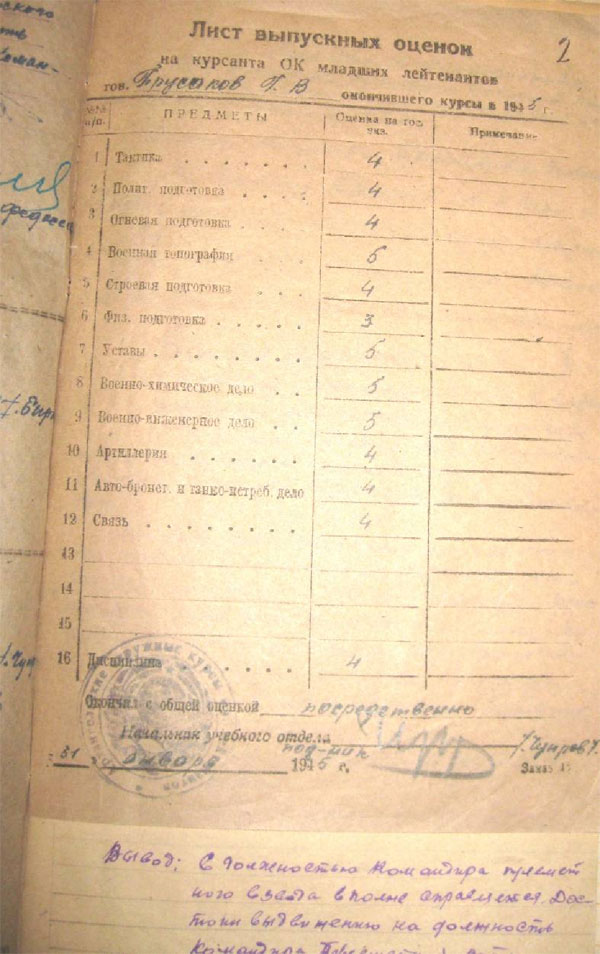 Лист выпускных оценок
2
на курсанта ОК младших лейтенантов
тов. Г. В окончившего курсы в 1945 г.
№№ п/п. ПРЕДМЕТЫ Оценка на гос. Примечание
1 Тактика 4
2 Полит. подготовка 4
3 Огневая подготовка 4
4 Военная топография 5
5 Строевая подготовка 4
6 Физ. подготовка 3
7 Уставы 5
8 Военно-химическое дело 5
9 Военно-инженерное дело 5
10 Артиллерия 4
11 Авто-бронет. и танко-истреб. дело 4
12 Связь 4
13
14
15
16 Дисциплина 4
Окончил с общей оценкой посредственно
Начальник учебного отдела
31 января 1945 г. Заказ
Вывод: С должностью командира пулемет
ного взвода вполне справляется. Дос-
тоин выдвижению на должность
командира